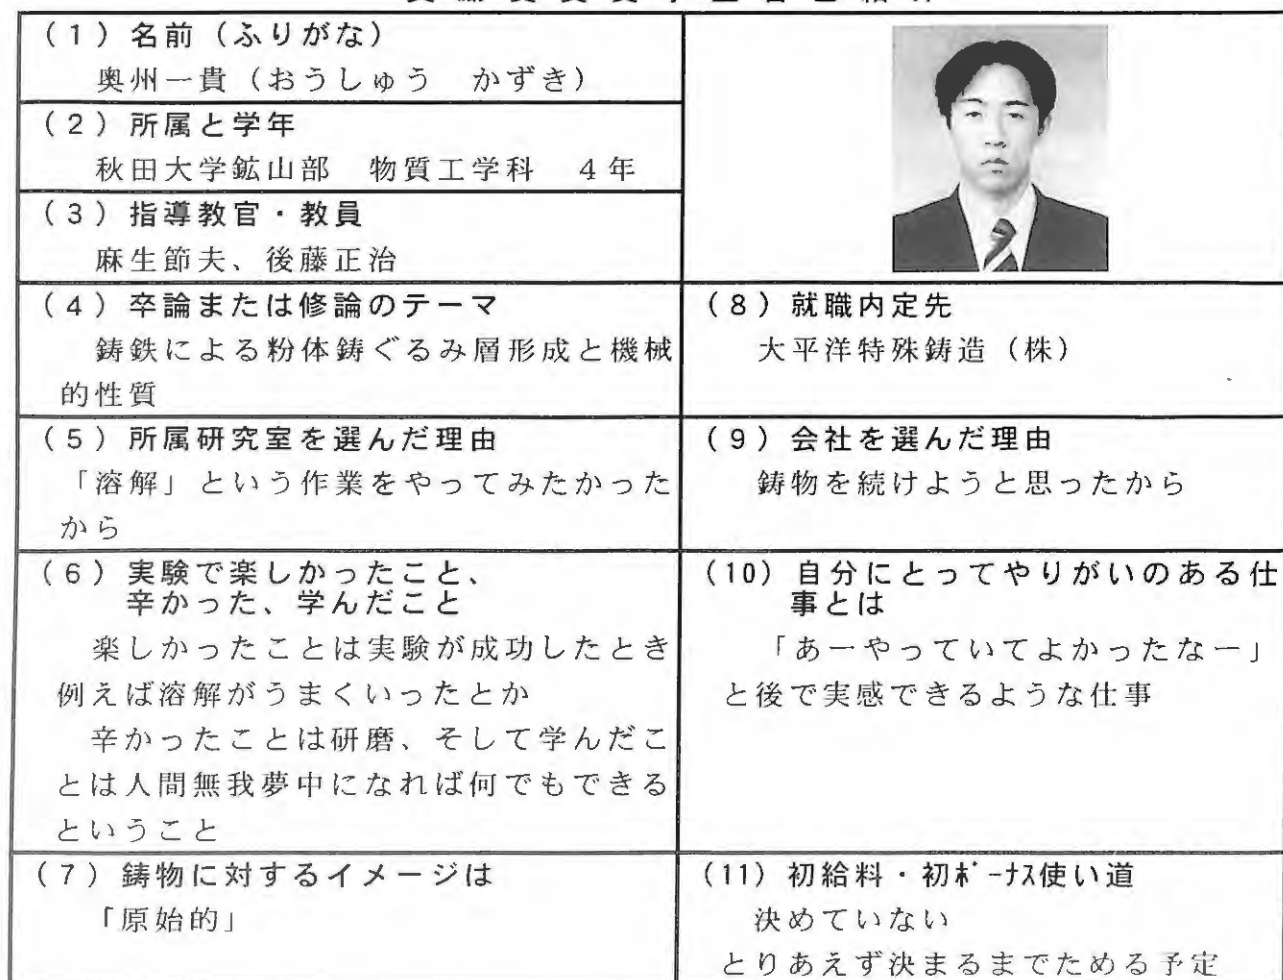 (1) 名前(ふりがな)
奥州一貴(おうしゅう かずき)
(2) 所属と学年
秋田大学鉱山部 物質工学科 4年
(3) 指導教官・教員
麻生節夫、後藤正治
(4) 卒論または修論のテーマ
鋳鉄による粉体鋳ぐるみ層形成と機械
的性質
(5) 所属研究室を選んだ理由
「溶解」という作業をやってみたかった
から
(6) 実験で楽しかったこと、
辛かった、学んだこと
楽しかったことは実験が成功したとき
例えば溶解がうまくいったとか
辛かったことは研磨、そして学んだこ
とは人間無我夢中になれば何でもできる
ということ
(7) 鋳物に対するイメージは
「原始的」
(8) 就職内定先
大平洋特殊鋳造(株)
(9) 会社を選んだ理由
鋳物を続けようと思ったから
(10) 自分にとってやりがいのある仕
事とは
「あーやっていてよかったなー」
と後で実感できるような仕事
(11) 初給料・初ボーナス使い道
決めていない
とりあえず決まるまでためる予定